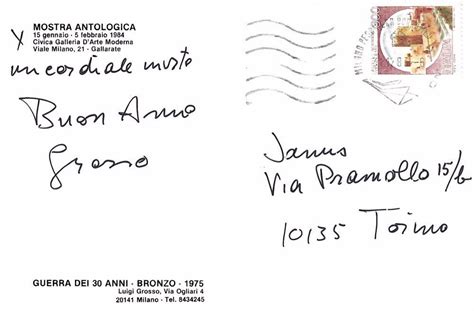 MOSTRA ANTOLOGICA
15 gennaio - 5 febbraio 1984
Civica Galleria D'Arte Moderna
Viale Milano, 21 - Gallarate
X un cordiale invito
Buon Anno
Grosso
Janus
Via Pramollo 15/b
10135 Torino
GUERRA DEI 30 ANNI - BRONZO - 1975
Luigi Grosso, Via Ogliari 4
20141 Milano - Tel. 8434245